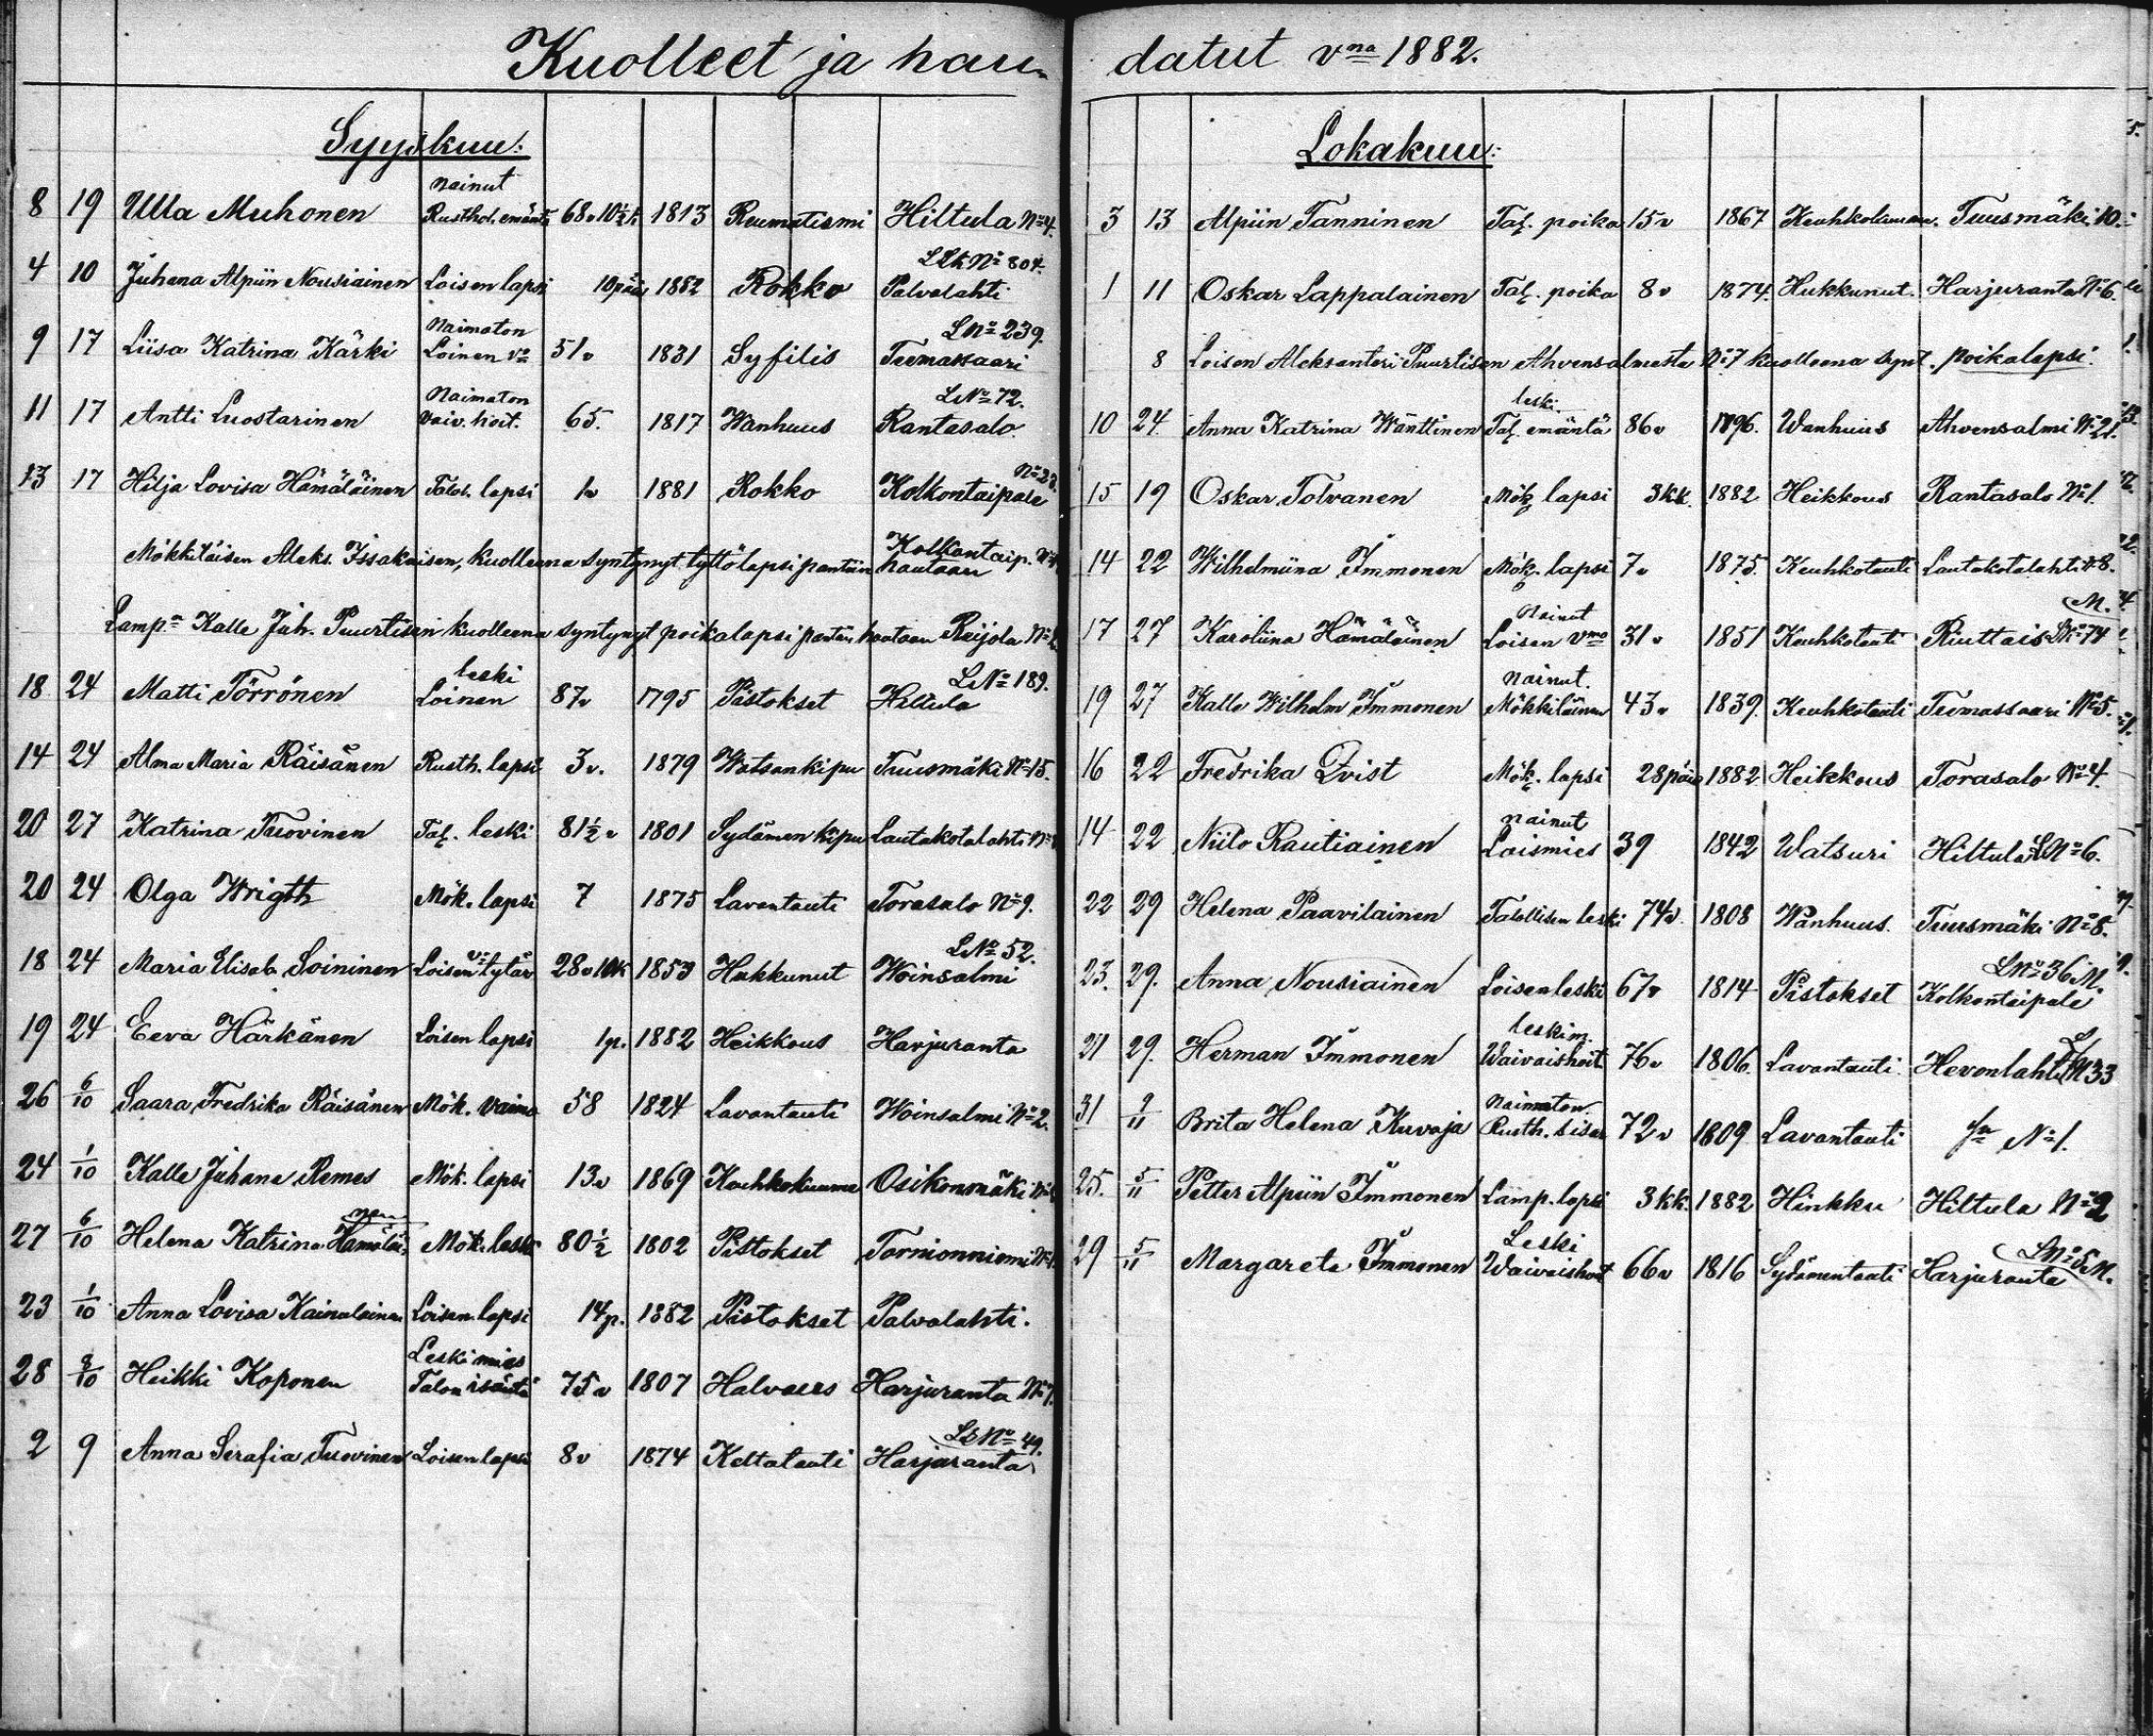 Kuolleet ja hau-
datut vna 1882.
Syyskuu:
nainut
8 19 Ulla Muhonen Rusthol. emäntä 68v 10½k 1813 Reumatismi Hiltula No 4.
LLk No 804.
4 10 Juhana Alpiin Nousiainen Loisen lapsi 10päiv 1882 Rokko Palvalahti
Naimaton L No 239.
9 17 Liisa Katrina Kärki Loinen 51v 1831 Syfilis Teemassaari
Naimaton L No 72.
11 17 Antti Luostarinen vaiv. hoit. 65. 1817 Wanhuus Rantasalo.
13 17 Hilja Lovisa Hämäläinen Talol. lapsi 1v 1881 Rokko Kolkontaipale
Mökkiläisen Aleks. Issakaisen, kuolleena syntynyt tyttölapsi pantiin hautaan Kolkontaip.
Lamp:n Kalle Juh. Puurtisen kuolleena syntynyt poikalapsi pantiin hautaan Reijola
leski L No 189.
18 24 Matti Törrönen Loinen 87v 1795 Pistokset Hiltula
14 24 Alma Maria Räisänen Rusth. lapsi 3v. 1879 Watsankipu Tuusmäki No 15.
20 27 Katrina Tuovinen Tal. leski 81½v 1801 Sydämen kipu Lautakotalahti
20 24 Olga Wrigth Mök. lapsi 7 1875 Lavantauti Torasalo No 9.
L No 52.
18 24 Maria Elisab. Soininen Loisen tytär 28v 1853 Hukkunut Woinsalmi
19 24 Eeva Härkänen Loisen lapsi 1p. 1882 Heikkous Harjuranta
26 6/10 Saara Fredrika Räisänen Mök. vaimo 58 1824 Lavantauti Woinsalmi No 2.
24 1/10 Kalle Juhana Remes Mök. lapsi 13v 1869 Keuhkokuume Osikonmäki
27 6/10 Helena Katrina Hämäläinen Mök. leski 80½ 1802 Pistokset Tornionniemi
23 1/10 Anna Lovisa Kainulainen Loisen lapsi 14p. 1882 Pistokset Palvalahti.
Leski mies
28 8/10 Heikki Koponen Talon isäntä 75v 1807 Halvaus Harjuranta No 7.
LL No 49.
2 9 Anna Serafia Tuovinen Loisen lapsi 8v 1874 Keltatauti Harjuranta
Lokakuu:
3 13 Alpiin Tanninen Tal. poika 15v 1867 Keuhkokuume. Tuusmäki. 10.
1 11 Oskar Lappalainen Tal. poika 8v 1874. Hukkunut. Harjuranta No 6.
8 Loisen Aleksanteri Puurtisen Ahvensalmesta No 7 kuolleena synt. poikalapsi.
leski.
10 24. Anna Katrina Wänttinen Tal. emäntä 86v 1796. Wanhuus Ahvensalmi No 21.
15 19 Oskar Tolvanen Mök lapsi 3kk. 1882 Heikkous Rantasalo No 1.
14 22 Wilhelmiina Immonen Mök. lapsi 7v 1875. Keuhkotauti Lautakotalahti No 8.
Nainut M.
17 27 Karoliina Hämäläinen Loisen vmo 31v 1851 Keuhkotauti Riuttais L No 74
nainut.
19 27 Kalle Wilhelm Immonen Mökkiläinen 43v 1839. Keuhkotauti Teemassaari No 5.
16 22 Fredrika Qvist Mök. lapsi 28päiv 1882 Heikkous Torasalo No 4.
nainut
14 22 Niilo Rautiainen Loismies 39 1842 Watsuri Hiltula L No 6.
22 29 Helena Paavilainen Talollisen leski 74v. 1808 Wanhuus. Tuusmäki No 8.
L No 36 M.
23. 29. Anna Nousiainen Loisen leski 67v 1814 Pistokset Kolkontaipale
leskim.
21 29. Herman Immonen Waivaishoit 76v 1806. Lavantauti Hevonlahti L No 33
naimaton
31 9/11 Brita Helena Kuvaja Rusth. sisar 72v 1809 Lavantauti No 1.
25. 5/11 Petter Alpiin Immonen Lamp. lapsi 3kk. 1882 Hinkku Hiltula No 2
Leski L No 5 M.
29 5/11 Margareta Immonen Waivaishoit 66v 1816 Sydämentauti Harjuranta